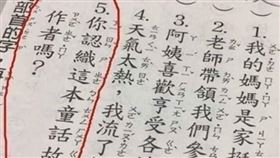 1.我的媽媽是家
2.老師帶領我們參
3.阿姨喜歡享受各
4.天氣太熱，我流了
5.你認織這本童話故
作者嗎？
部首的字，